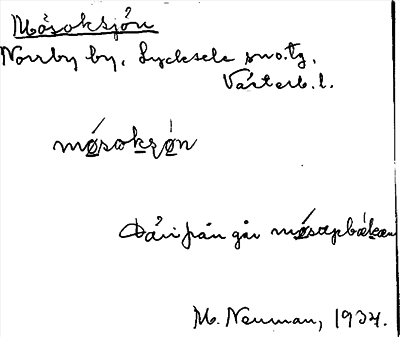 Mösoksjön
Norrby by, Lycksele sn o. tg,
Västerb. l.
mǿsoksø̀n
Därifrån går mǿsapbäkan
M. Neuman, 1937.